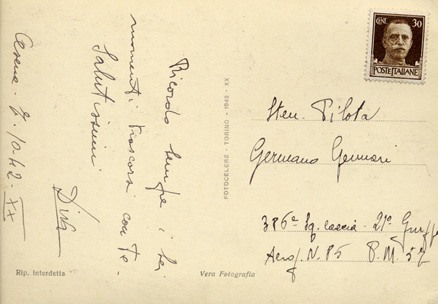 CENT. 30
POSTE ITALIANE
Ricordo sempre i bei
momenti trascorsi con te.
Salutissimi
Dina
Cesena 7.10.42-XX
FOTOCELERE - TORINO - 1942 - XX
Sten. Pilota
Germano Gennari
386ª Sq. caccia - 21º Gruppo
Aerop. N. 85 P.M. 52
Rip. interdetta
Vera Fotografia